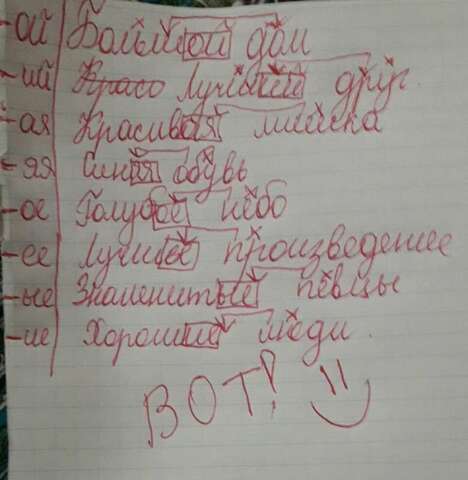 -ой Большой дом
-ий Красо Лучший друг.
-ая Красивая миска
-яя Синяя обувь
-ое Голубое небо
-ее Лучшее произведение
-ые Знаменитые певцы
-ие Хорошие люди.
ВОТ!